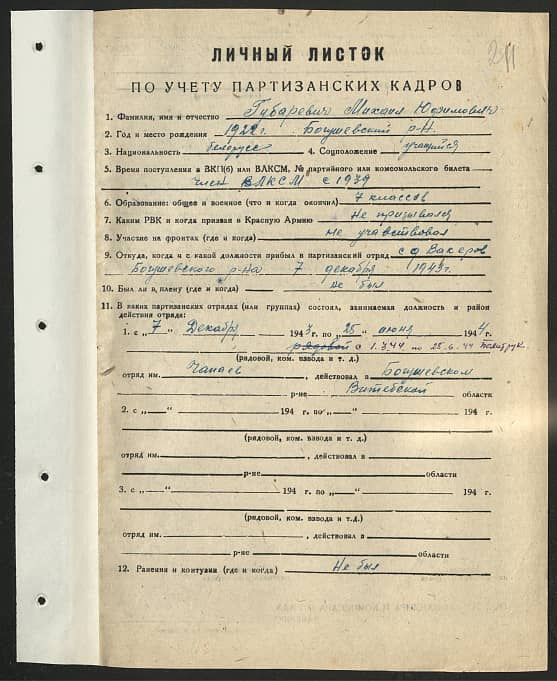 211
ЛИЧНЫЙ ЛИСТОК
ПО УЧЕТУ ПАРТИЗАНСКИХ КАДРОВ
1. Фамилия, имя и отчество Губаревич Михаил Юхимович
2. Год и место рождения 1922 г. Богушевский р-н.
3. Национальность белорусс 4. Соцположение учащийся
5. Время поступления в ВКП(б) или ВЛКСМ, № партийного или комсомольского билета
член ВЛКСМ с 1939
6. Образование: общее и военное (что и когда окончил) 7 классов
7. Каким РВК и когда призван в Красную Армию Не призывался
8. Участие на фронтах (где и когда) не участвовал
9. Откуда, когда и с какой должности прибыл в партизанский отряд с д.
Богушевского р-на 7 декабря 1943 г.
10. Был ли в плену (где и когда) не был
11. В каких партизанских отрядах (или группах) состоял, занимаемая должность и район
действия отряда:
1. с „7“ Декабря 1943 г. по „25“ июня 1944 г.
рядовой с 1.3.44 по 25.6.44 Политрук
(рядовой, ком. взвода и т. д.)
отряд им. Чапаев, действовал в Богушевском
р-не Витебской области
2. с „ “ 194 г. по „ “ 194 г.
(рядовой, ком. взвода и т. д.)
отряд им. , действовал в
р-не области
3. с „ “ 194 г. по „ “ 194 г.
(рядовой, ком. взвода и т.д.)
отряд им. , действовал в
р-не области
12. Ранения и контузии (где и когда) Не был